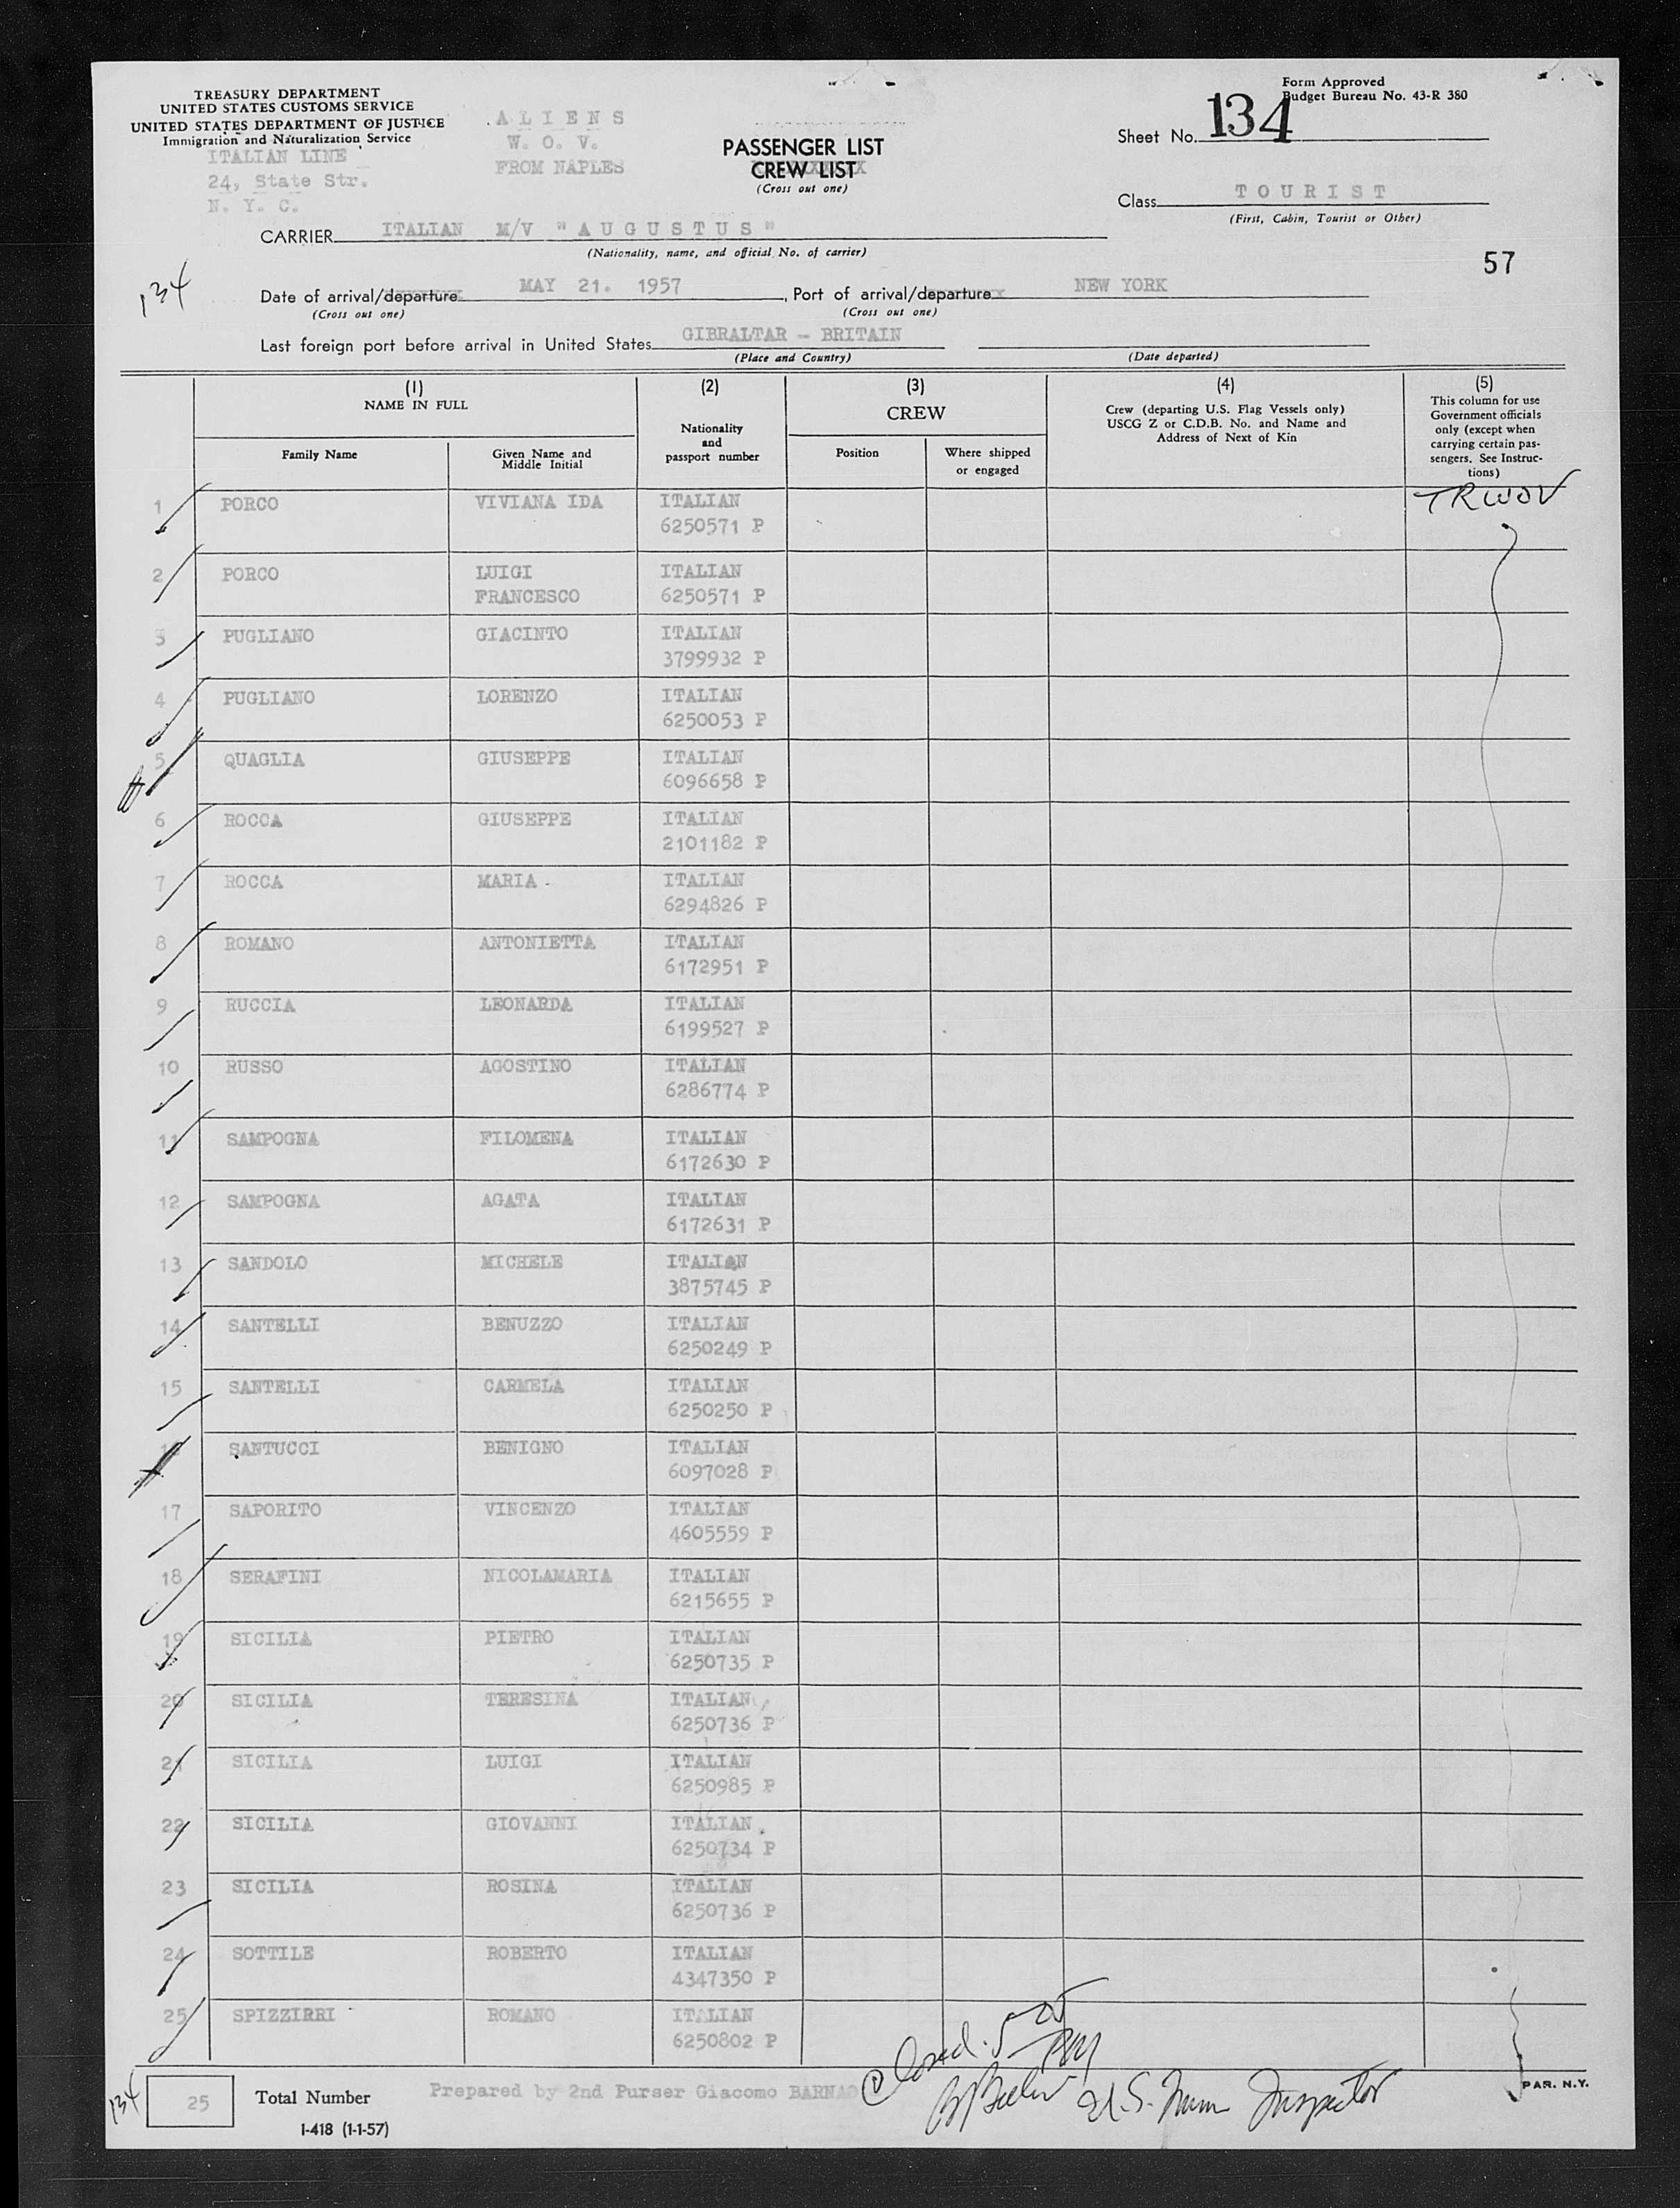 TREASURY DEPARTMENT
UNITED STATES CUSTOMS SERVICE
UNITED STATES DEPARTMENT OF JUSTICE
Immigration and Naturalization Service
ITALIAN LINE
24, State Str.
N. Y. C.
A L I E N S
W. O. V.
FROM NAPLES
PASSENGER LIST
CREW LIST
(Cross out one)
Form Approved
Budget Bureau No. 43-R 380
Sheet No. 134
Class TOURIST
(First, Cabin, Tourist or Other)
CARRIER ITALIAN M/V "AUGUSTUS"
(Nationality, name, and official No. of carrier)
57
134
Date of arrival/departure MAY 21. 1957, Port of arrival/departure NEW YORK
(Cross out one) (Cross out one)
Last foreign port before arrival in United States GIBRALTAR - BRITAIN
(Place and Country) (Date departed)
(1)
NAME IN FULL
Family Name
Given Name and
Middle Initial
(2)
Nationality
and
passport number
(3)
CREW
Position
Where shipped
or engaged
(4)
Crew (departing U.S. Flag Vessels only)
USCG Z or C.D.B. No. and Name and
Address of Next of Kin
(5)
This column for use
Government officials
only (except when
carrying certain pas-
sengers. See Instruc-
tions)
1 PORCO VIVIANA IDA ITALIAN TRWOV
6250571 P
2 PORCO LUIGI ITALIAN
FRANCESCO 6250571 P
3 PUGLIANO GIACINTO ITALIAN
3799932 P
4 PUGLIANO LORENZO ITALIAN
6250053 P
5 QUAGLIA GIUSEPPE ITALIAN
6096658 P
6 ROCCA GIUSEPPE ITALIAN
2101182 P
7 ROCCA MARIA ITALIAN
6294826 P
8 ROMANO ANTONIETTA ITALIAN
6172951 P
9 RUCCIA LEONARDA ITALIAN
6199527 P
10 RUSSO AGOSTINO ITALIAN
6286774 P
11 SAMPOGNA FILOMENA ITALIAN
6172630 P
12 SAMPOGNA AGATA ITALIAN
6172631 P
13 SANDOLO MICHELE ITALIAN
3875745 P
14 SANTELLI BENUZZO ITALIAN
6250249 P
15 SANTELLI CARMELA ITALIAN
6250250 P
SANTUCCI BENIGNO ITALIAN
6097028 P
17 SAPORITO VINCENZO ITALIAN
4605559 P
18 SERAFINI NICOLAMARIA ITALIAN
6215655 P
19 SICILIA PIETRO ITALIAN
6250735 P
20 SICILIA TERESINA ITALIAN
6250736 P
21 SICILIA LUIGI ITALIAN
6250985 P
22 SICILIA GIOVANNI ITALIAN
6250734 P
23 SICILIA ROSINA ITALIAN
6250736 P
24 SOTTILE ROBERTO ITALIAN
4347350 P
25 SPIZZIRRI ROMANO ITALIAN
6250802 P
134
25 Total Number
Prepared by 2nd Purser Giacomo BARNAO
Closed.
U.S. Imm Inspector
PAR. N.Y.
I-418 (1-1-57)